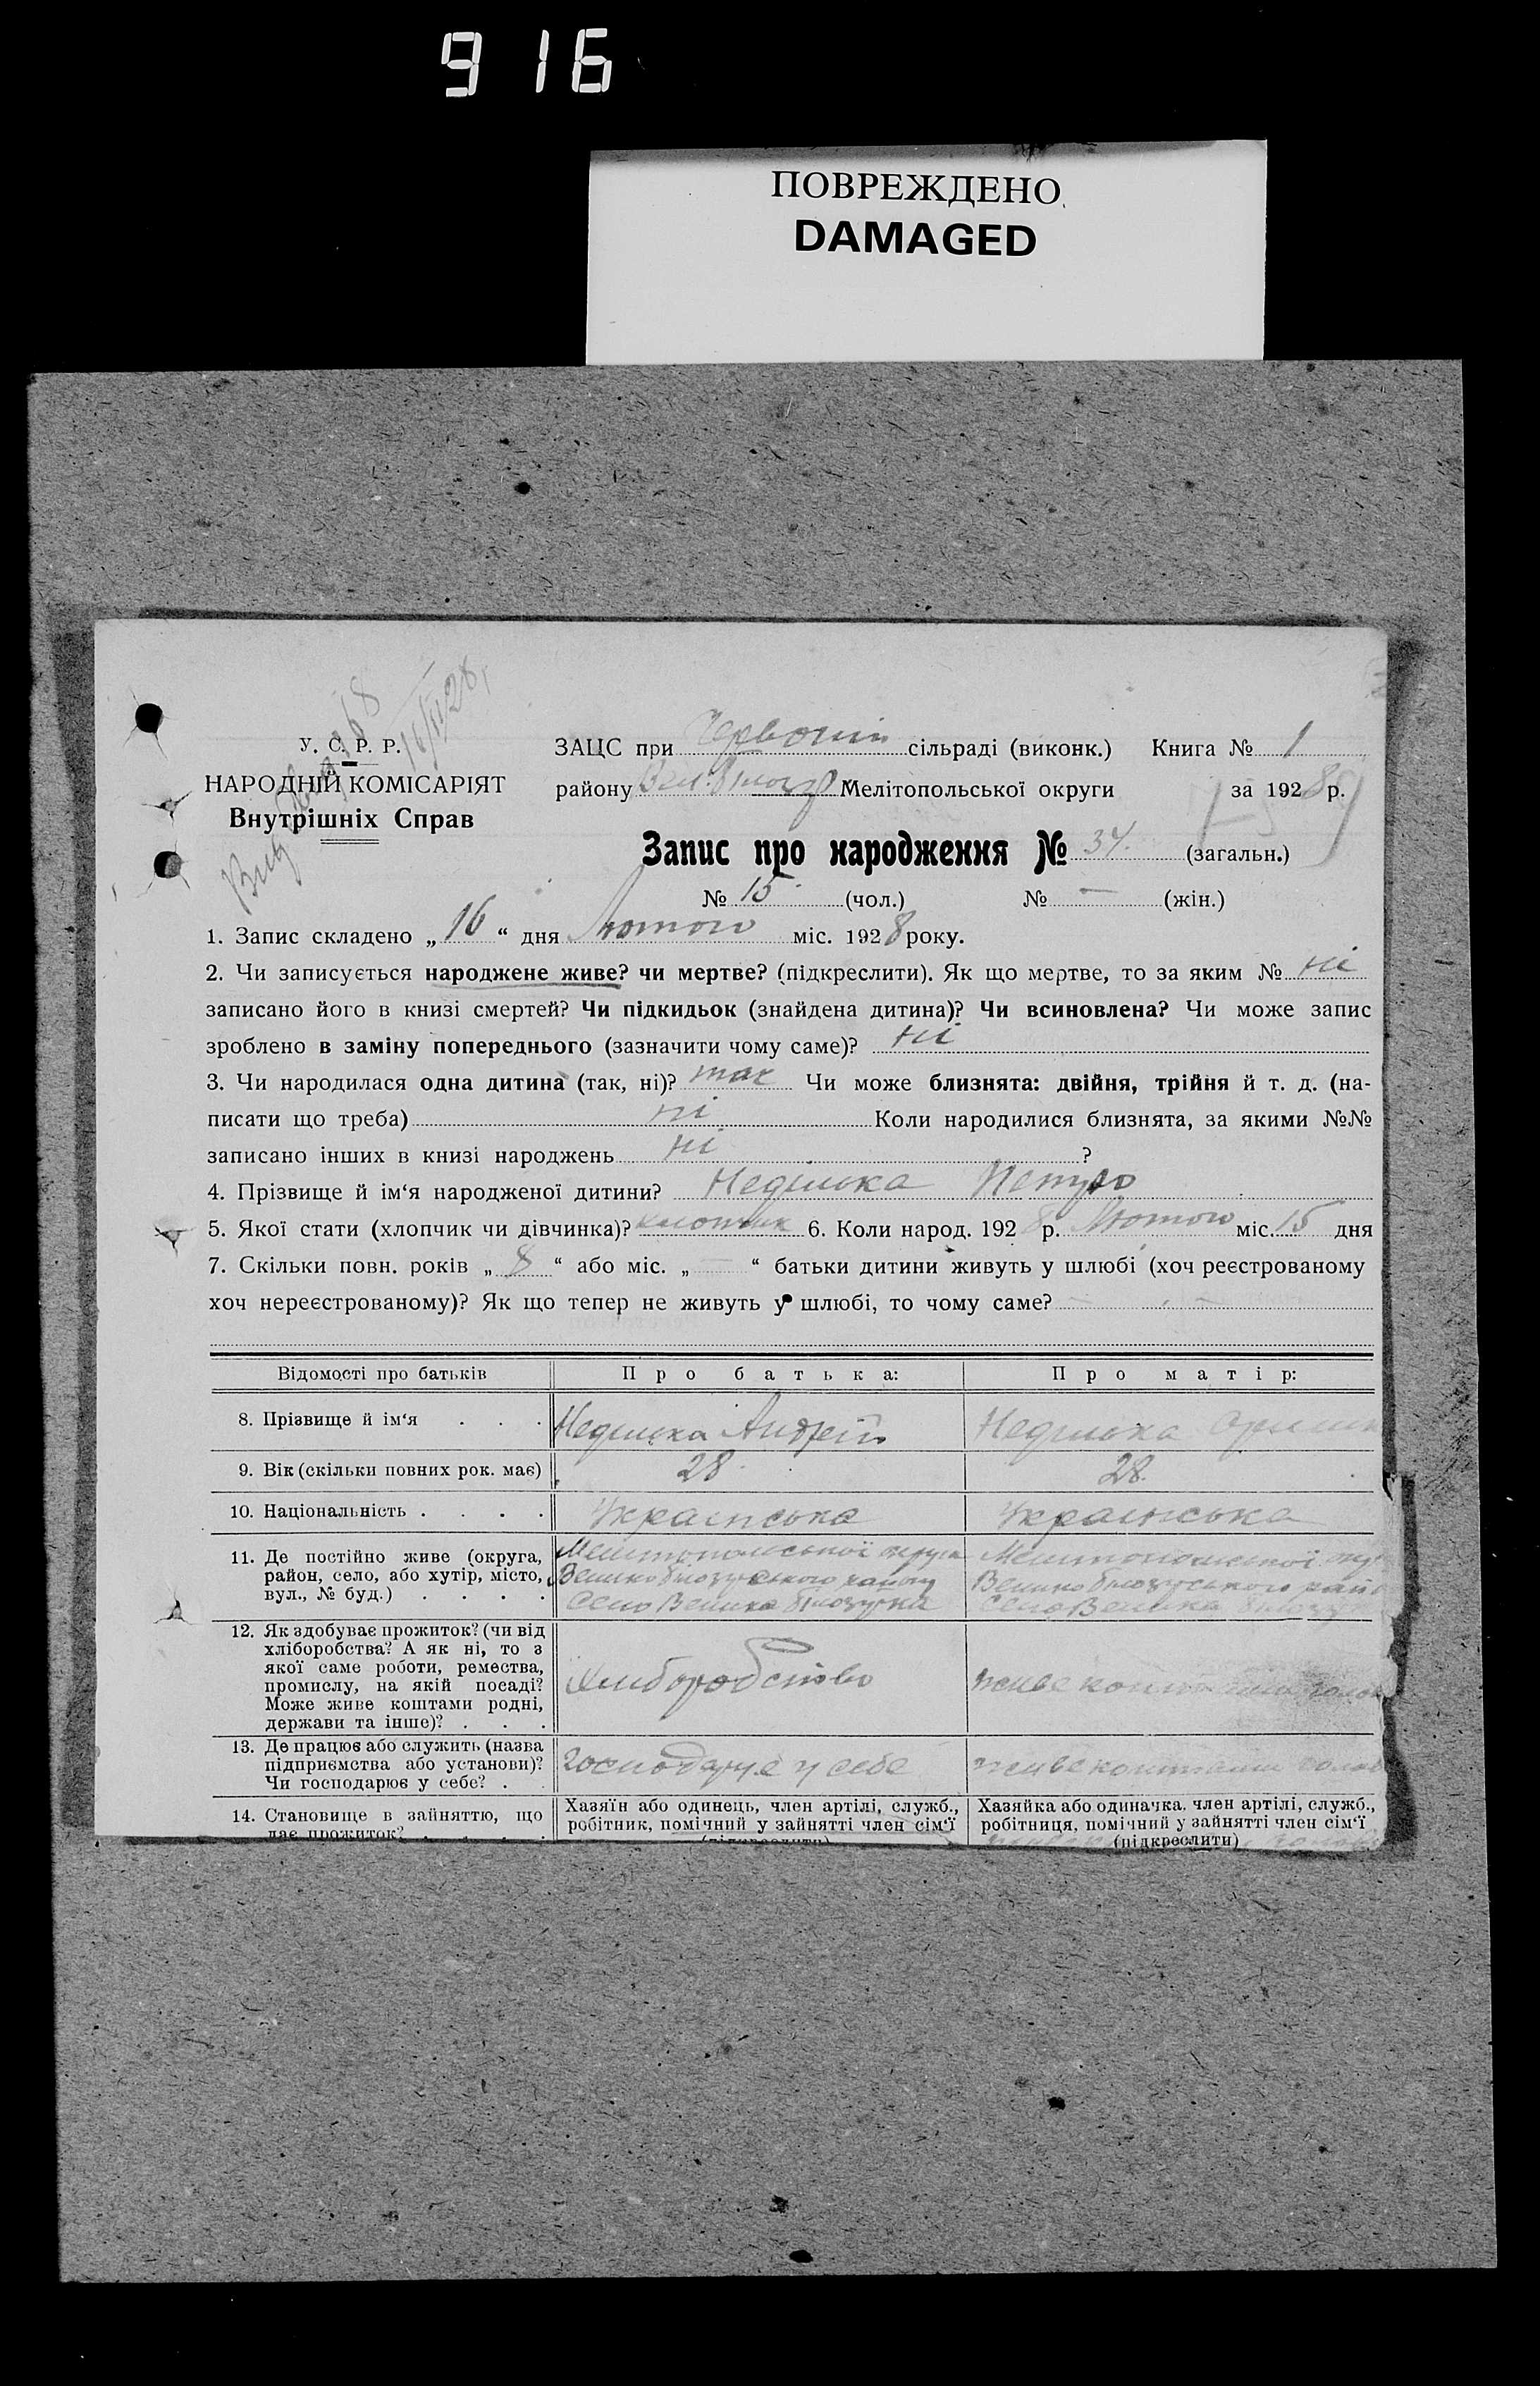 916
ПОВРЕЖДЕНО
DAMAGED
16/II 28
У. С. Р. Р.
НАРОДНІЙ КОМІСАРІЯТ
Внутрішніх Справ
ЗАЦС при сільраді (виконк.) Книга № 1
району Мелітопольської округи за 1928 р.
Запис про народження № 34. (загальн.)
№ 15 (чол.) № — (жін.)
1. Запис складено „16“ дня Лютого міс. 1928 року.
2. Чи записується народжене живе? чи мертве? (підкреслити). Як що мертве, то за яким № ні
записано його в книзі смертей? Чи підкидьок (знайдена дитина)? Чи всиновлена? Чи може запис
зроблено в заміну попереднього (зазначити чому саме)? ні
3. Чи народилася одна дитина (так, ні)? так Чи може близнята: двійня, трійня й т. д. (на-
писати що треба) ні Коли народилися близнята, за якими №№
записано інших в книзі народжень ні ?
4. Прізвище й ім‘я народженої дитини? Неділька Петро
5. Якої стати (хлопчик чи дівчинка)? хлопчик 6. Коли народ. 1928 р. Лютого міс. 15 дня
7. Скільки повн. років „8“ або міс. „—“ батьки дитини живуть у шлюбі (хоч реєстрованому
хоч нереєстрованому)? Як що тепер не живуть у шлюбі, то чому саме? — . —
Відомості про батьків Про батька: Про матір:
8. Прізвище й ім‘я . . . Неділька Андрій Неділька
9. Вік (скільки повних рок. має) 28 28.
10. Національність . . . . Українська Українська
11. Де постійно живе (округа, Мелітопольської округи Мелітопольської
район, село, або хутір, місто, Великобілозурського району Великобілозурського
вул., № буд.) . . . . Село Велика Білозурка Село Велика
12. Як здобуває прожиток? (чи від
хліборобства? А як ні, то з
якої саме роботи, ремества,
промислу, на якій посаді? Хліборобство живе коштами
Може живе коштами родні,
держави та інше)? . . .
13. Де працює або служить (назва
підприємства або установи)? Господарує у себе живе коштами
Чи господарює у себе? .
14. Становище в зайняттю, що Хазяїн або одинець, член артілі, служб., Хазяйка або одиначка, член артілі, служб.,
дає прожиток? . . . . робітник, помічний у зайнятті член сім‘ї робітниця, помічний у зайнятті член сім‘ї
(підкреслити) (підкреслити)